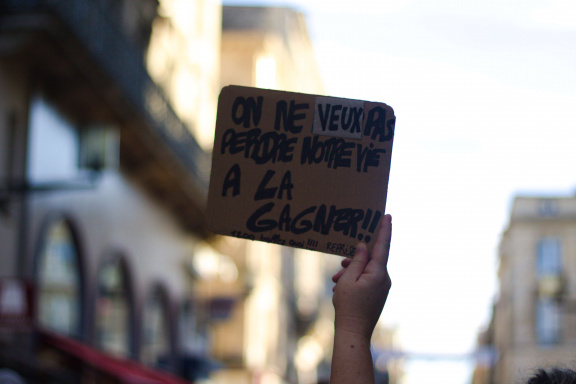 ON NE VEUX PAS
PERDRE NOTRE VIE
À LA
GAGNER!!